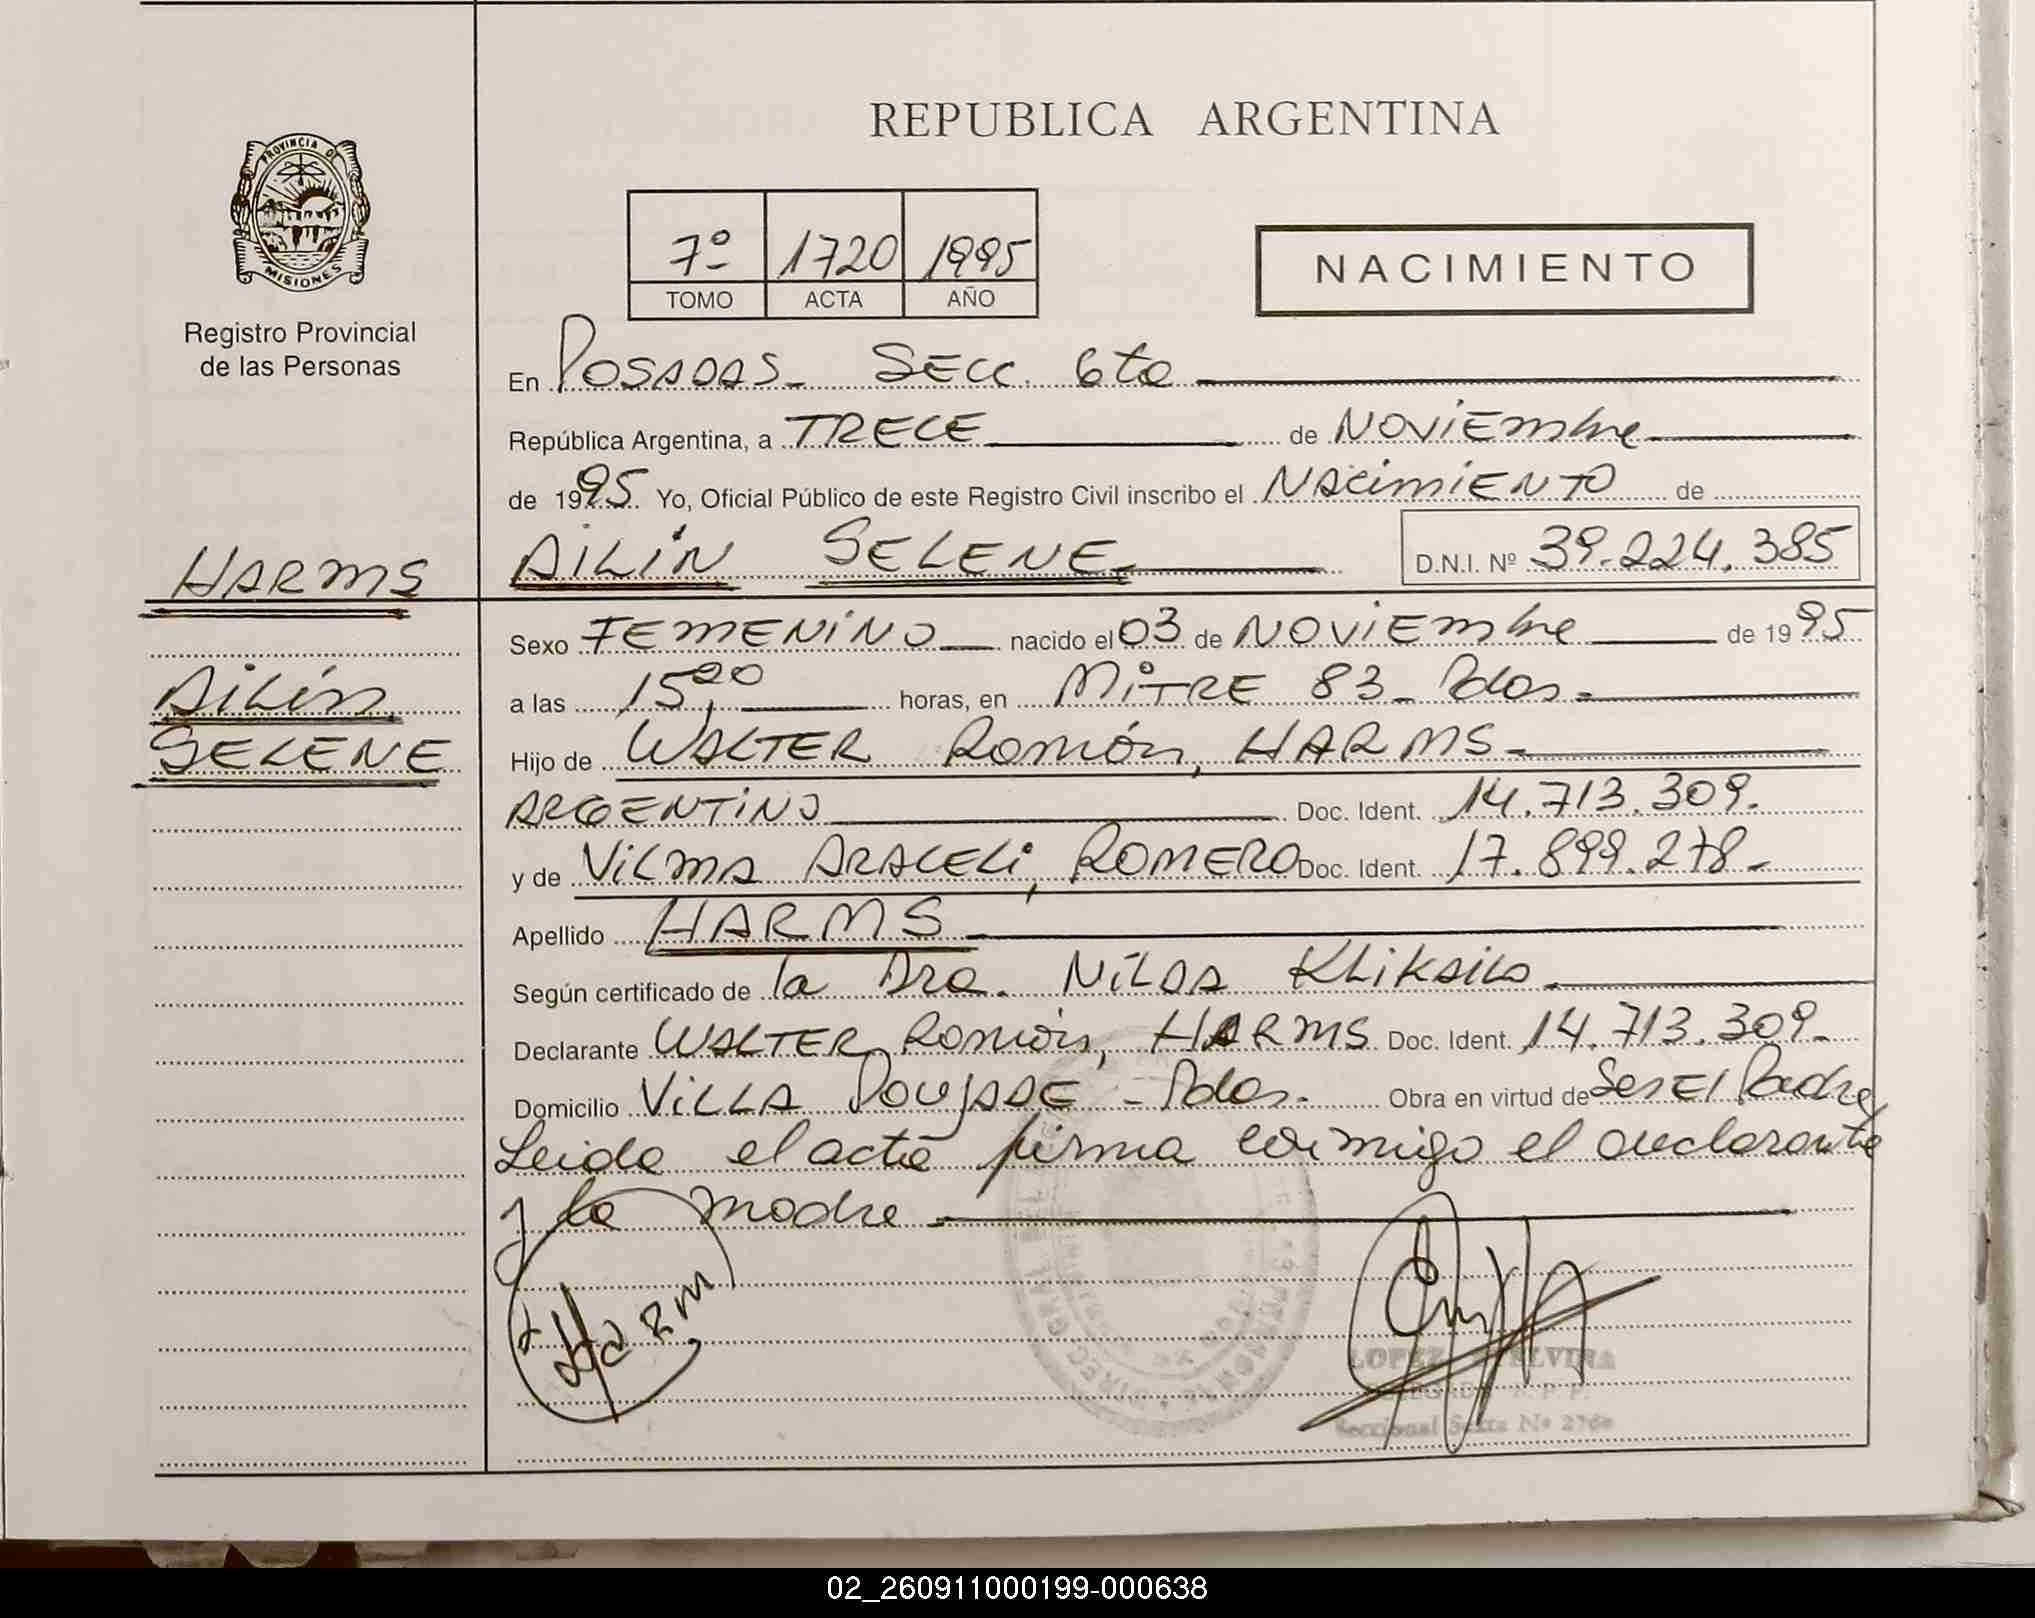 REPUBLICA ARGENTINA
PROVINCIA DE
MISIONES
Registro Provincial
de las Personas
7º 1720 1995
TOMO ACTA AÑO
NACIMIENTO
En POSADAS- SECC. 6ta
República Argentina, a TRECE de NOViEmbre
de 1995 Yo, Oficial Público de este Registro Civil inscribo el NACimiENTO de
HARMS
AiLíN SELENE D.N.I. Nº 39.224.385
Sexo FEMENiNO nacido el 03 de NOViEmbre de 1995
AiLín
a las 15,20 horas, en MiTRE 83- Pdas.
SELENE
Hijo de WALTER Ramón, HARMS
ARGENTiNO Doc. Ident. 14.713.309.
y de ViLMA ARACELi, ROMERO Doc. Ident. 17.899.278-
Apellido HARMS
Según certificado de la Dra. NiLDA
Declarante WALTER Ramón, HARMS Doc. Ident. 14.713.309-
Domicilio ViLLA POUJADE - Pdas. Obra en virtud de Ser El Padre
Leida el acta firma conmigo el declarante
y la madre
LOPEZ ELVIRA
Seccional Sexta Nº
02_260911000199-000638